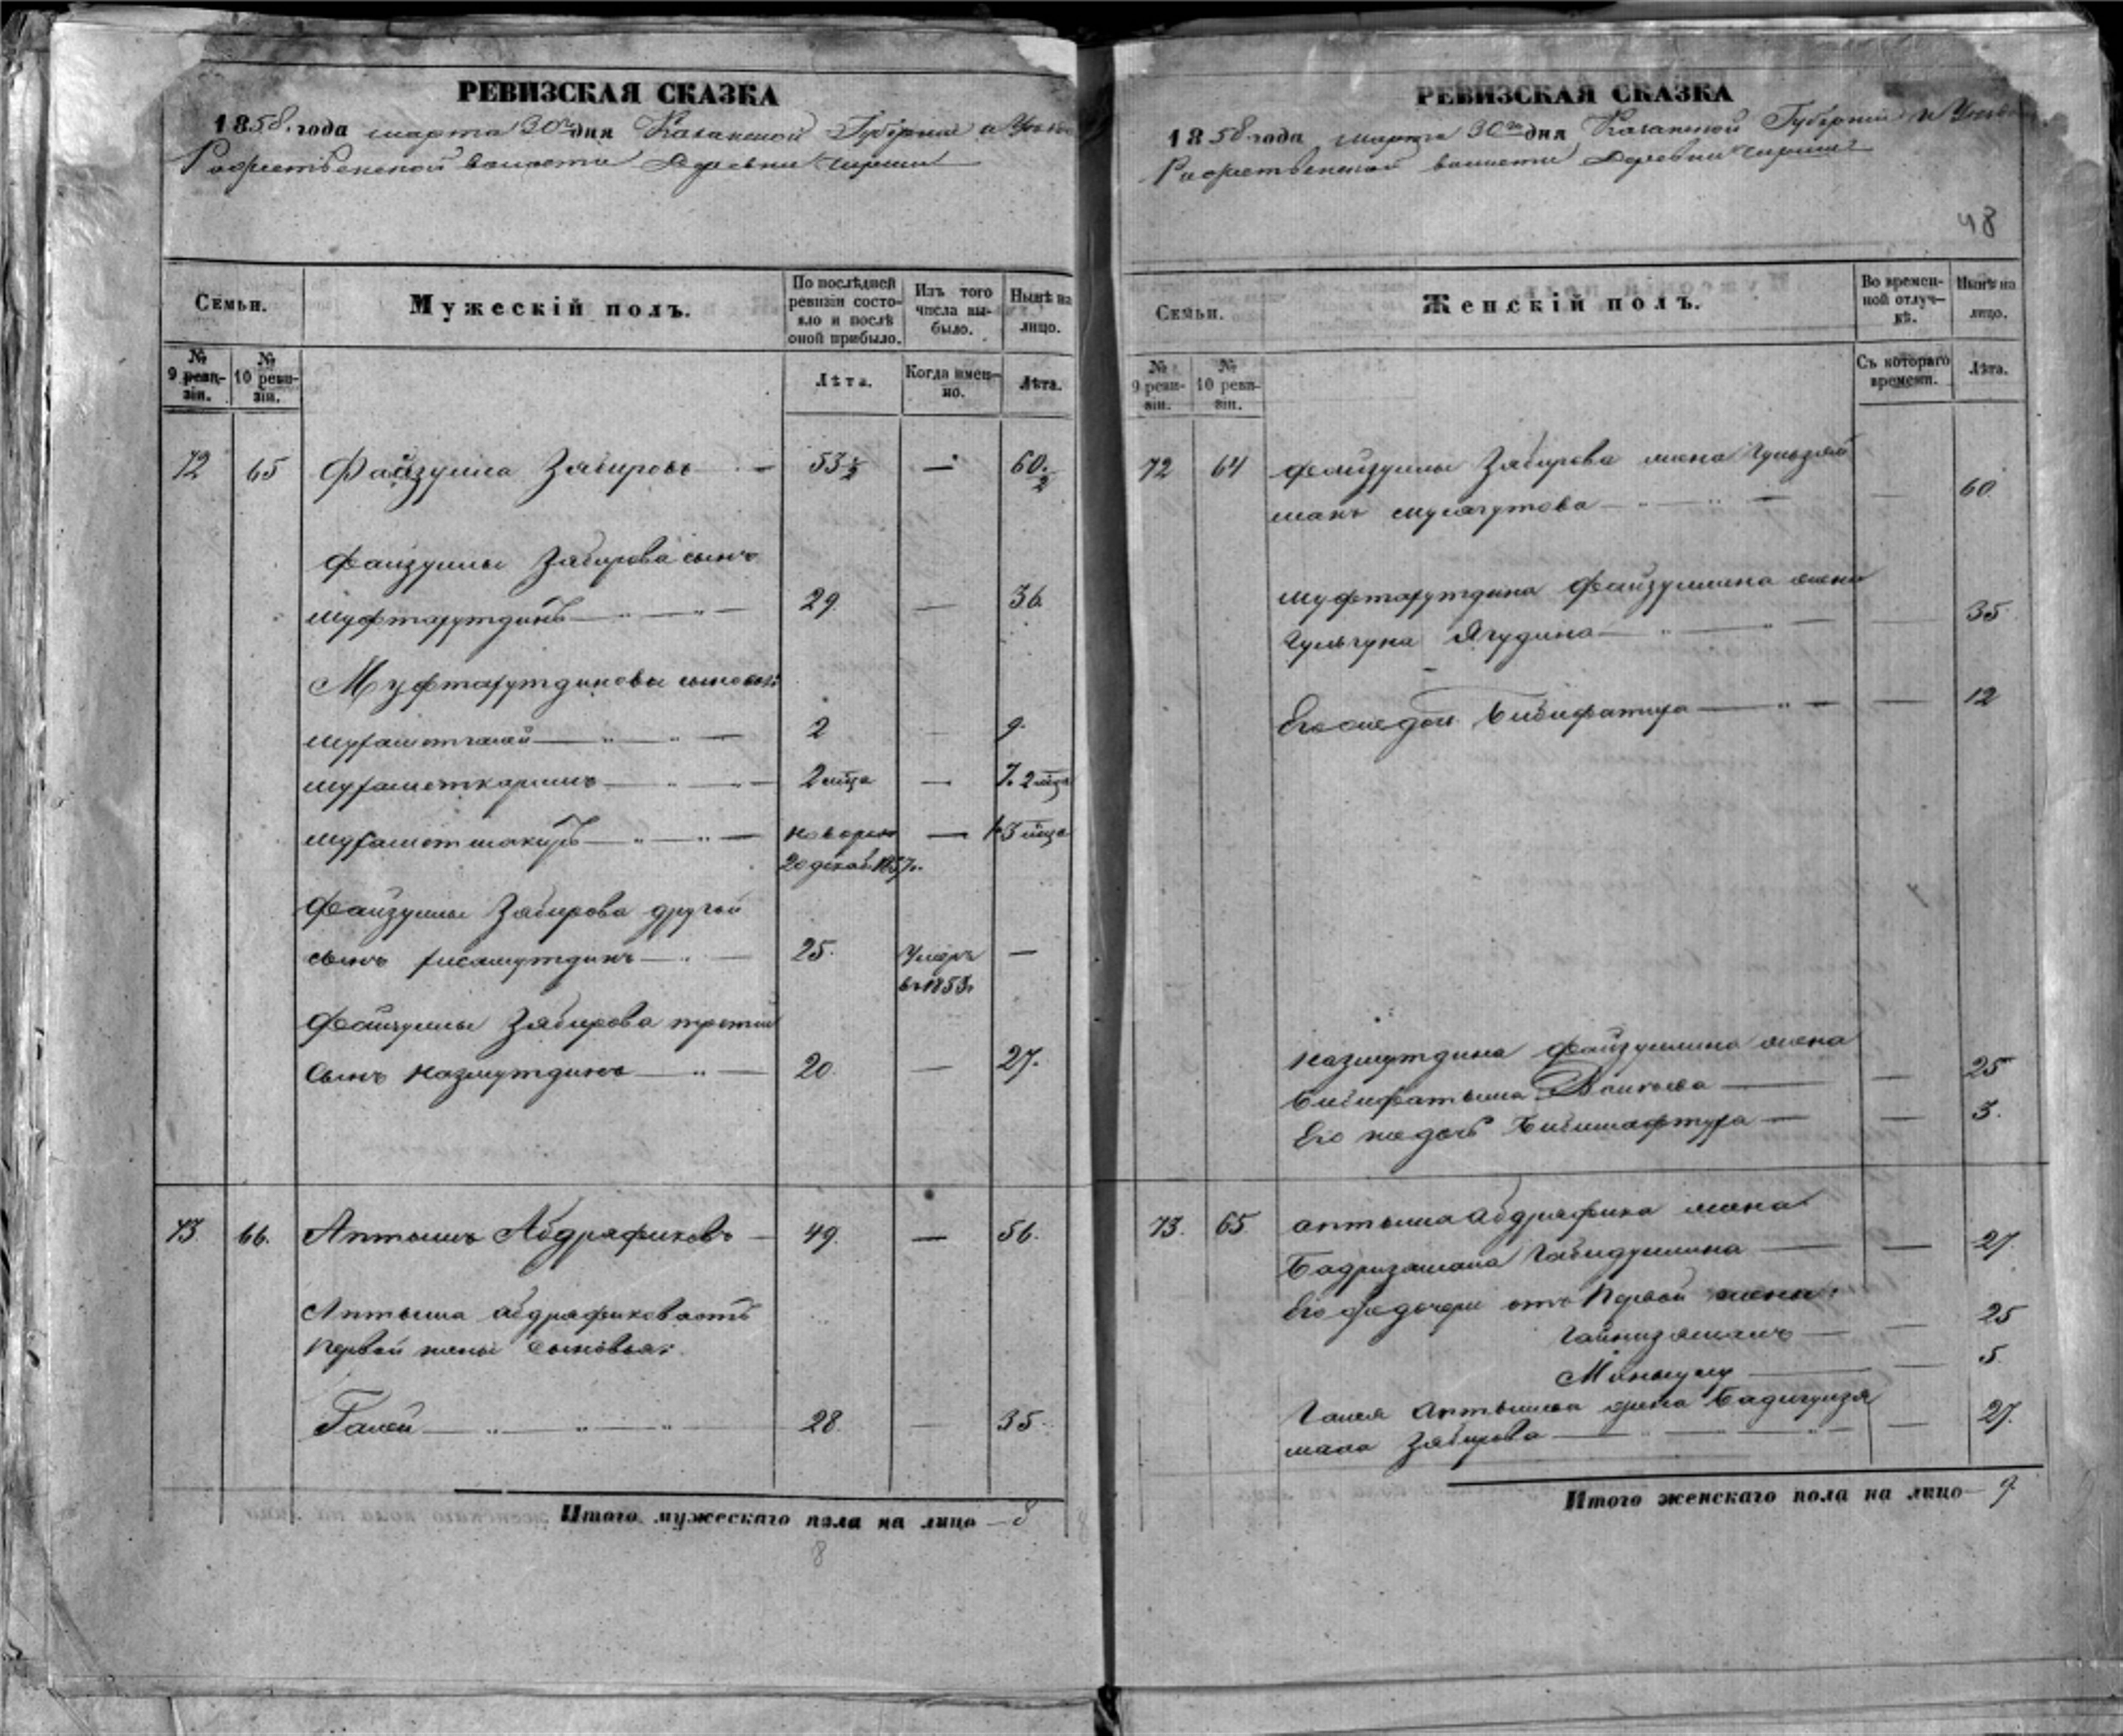 РЕВИЗСКАЯ СКАЗКА
1858 года марта 30го дня Казанской Губернии и Уезда
Рождественской волости Деревни
Семьи.
Мужескій полъ.
По послѣдней ревизіи состояло и послѣ оной прибыло.
Изъ того числа выбыло.
Нынѣ на лицо.
№ 9 ревизіи.
№ 10 ревизіи.
Лѣта.
Когда именно.
Лѣта.
72 65 Файзулла Зябировъ 53 1/2 — 60 1/2
Файзуллы Зябирова сынъ
Муфтахутдинъ 29 — 36
Муфтахутдинова сыновья
Мухаметгалей 2 — 9
Мухаметкаримъ 2 мца — 7. 2 мца
Мухаметшакиръ новорож — 3 мца
20 декаб. 1857 г.
Файзуллы Зябирова другой
сынъ Хисамутдинъ 25. Умеръ —
въ 1853 г.
Файзуллы Зябирова третий
сынъ Назмутдинъ 20 — 27.
73 66. Аптышъ Абдрафиковъ 49. — 56.
Аптыша Абдрафикова отъ
первой жены сыновья:
Галей 28 — 35
Итого мужескаго пола на лицо — 8
8
РЕВИЗСКАЯ СКАЗКА
1858 года марта 30го дня Казанской Губернии и Уезда
Рождественской волости Деревни
48
Семьи.
Женскій полъ.
Во временной отлучкѣ.
Нынѣ на лицо.
№ 9 ревизіи.
№ 10 ревизіи.
Съ котораго времени.
Лѣта.
72 64 Файзуллы Зябирова жена Гульзя
 — 60
Муфтахутдина Файзуллина жена
Гульгуна Ягудина — 35
Его же дочь Бибифатиха — 12
Назмутдина Файзуллина жена
Бибифатыма — 25
Его же дочь — 3.
73. 65 Аптыша Абдрафика жена
Бадризямала Габидуллина — 27.
Его же дочери отъ первой жены:
Гайнизямалъ — 25
 — 5
Галея Аптышева жена Бадигулзя
мала Зябирова — 27.
Итого женскаго пола на лицо — 9